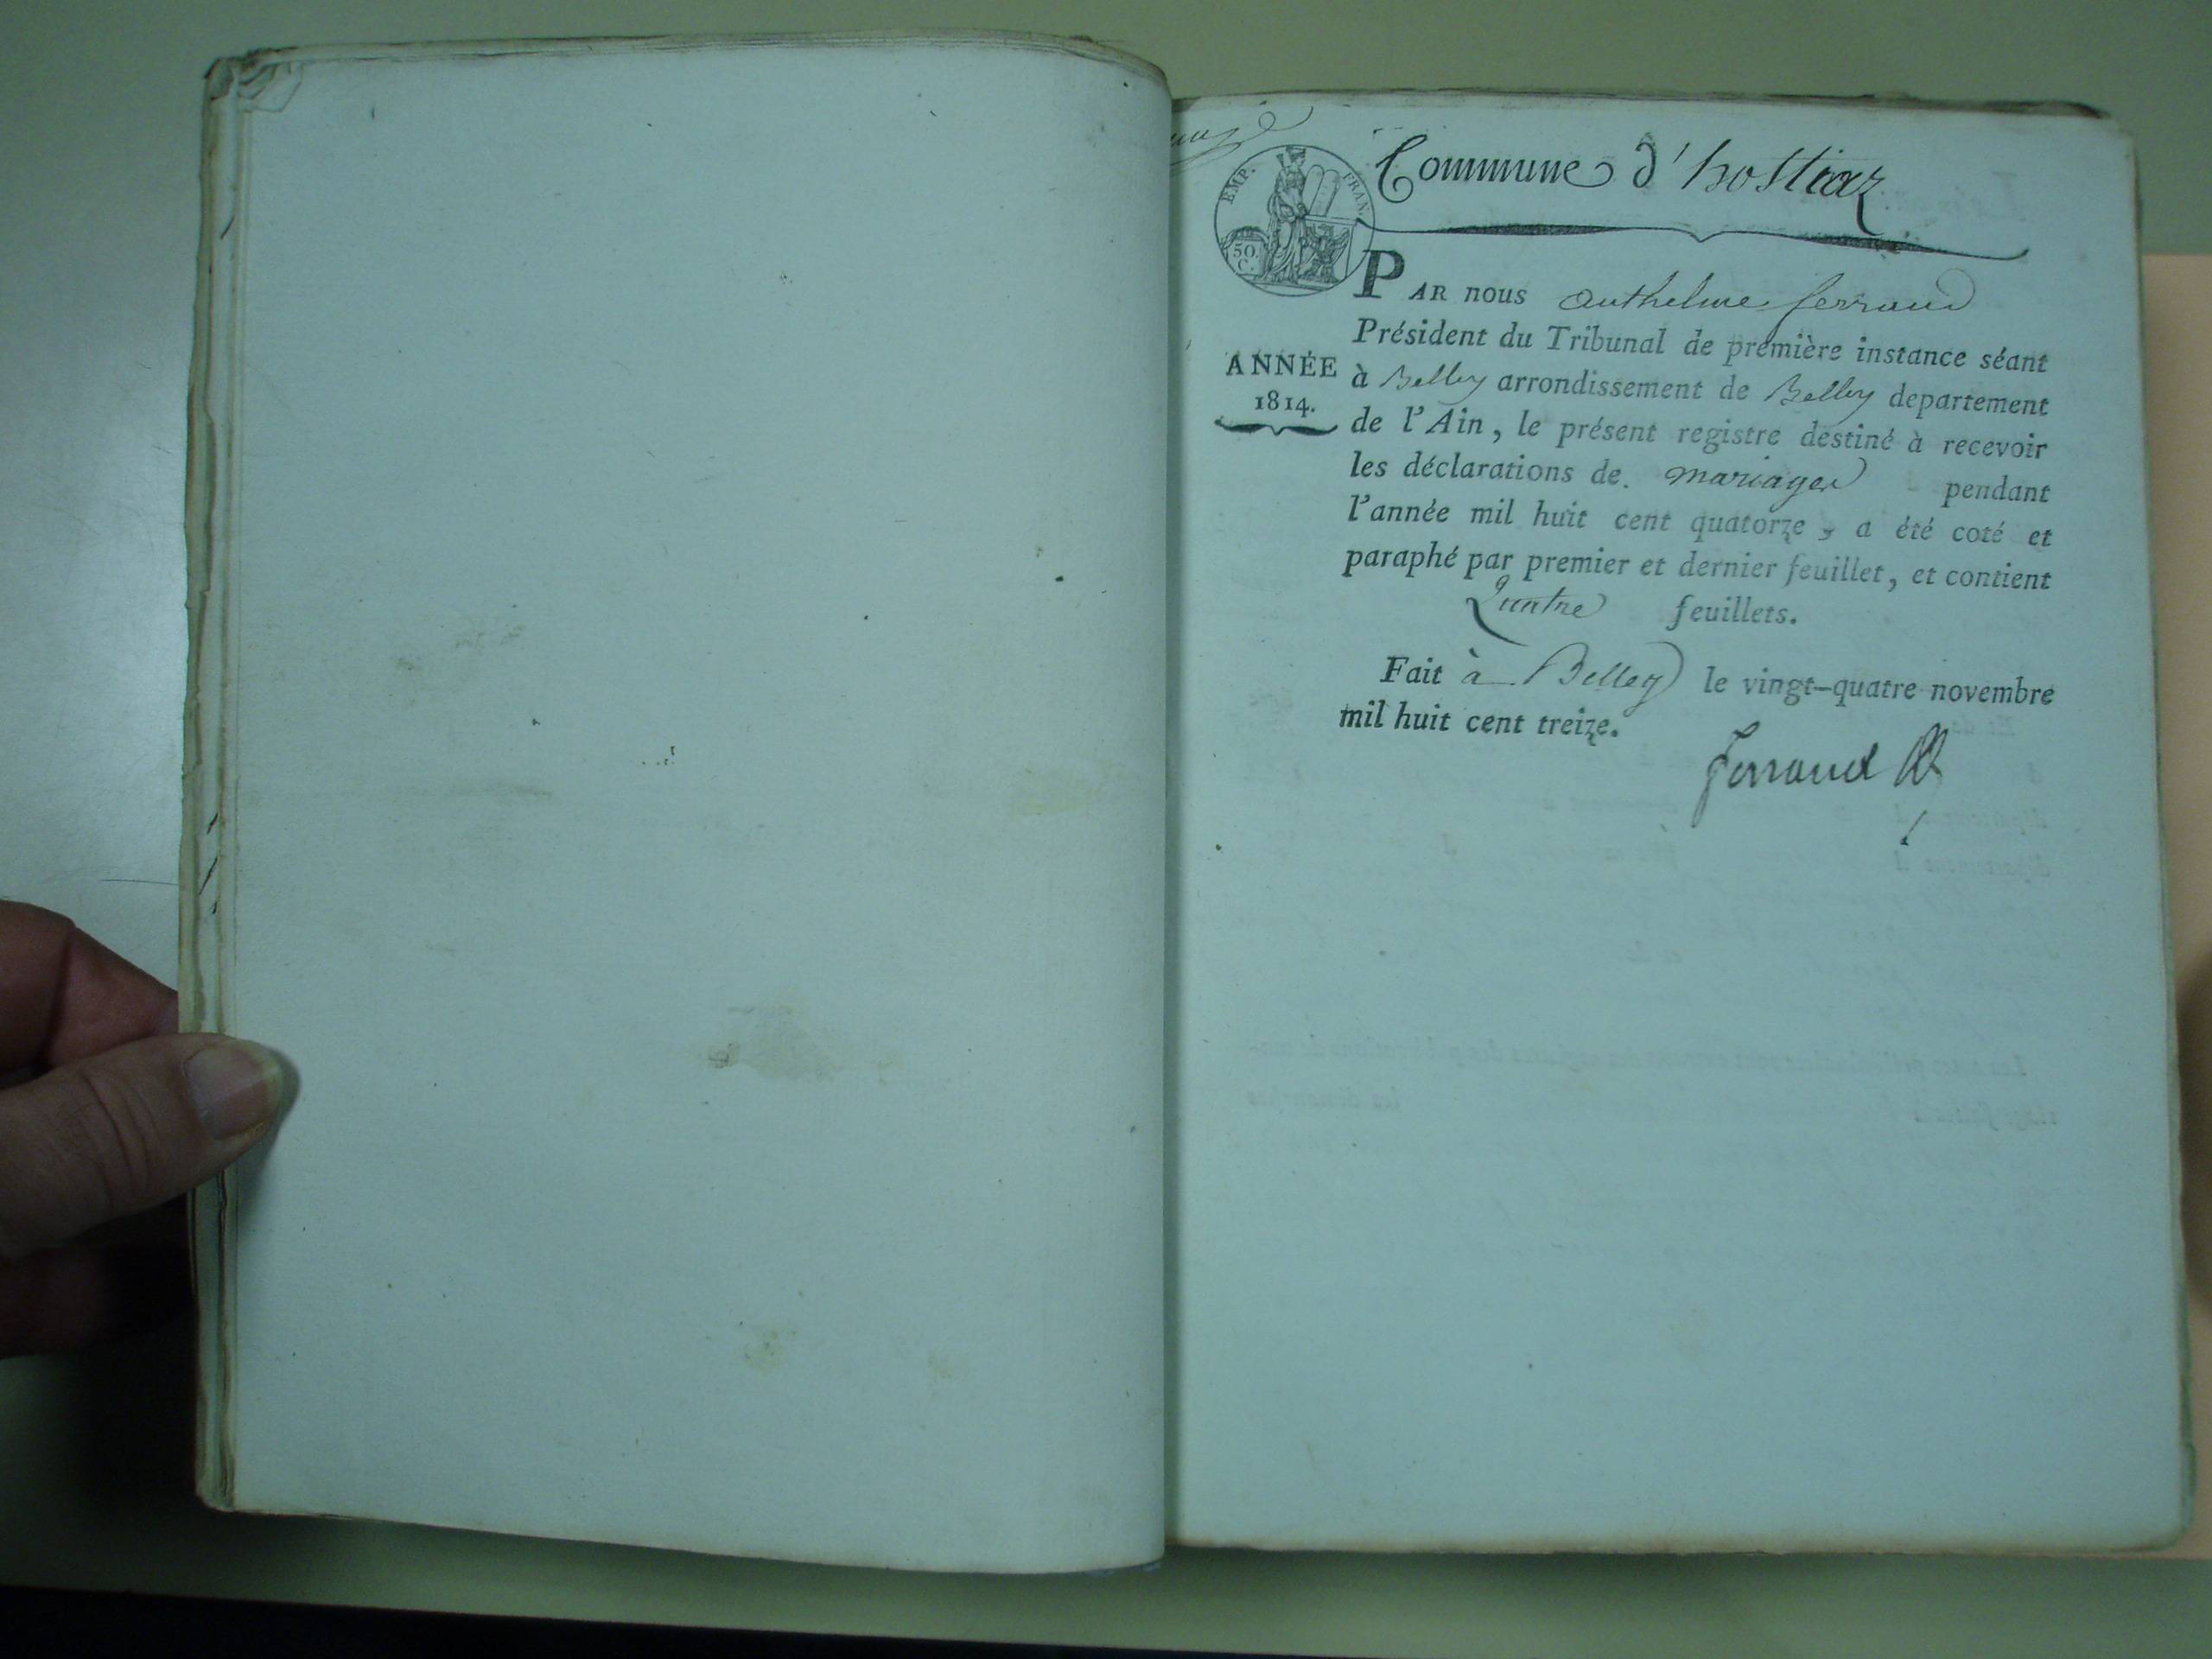 Commune d'hostiaz
EMP. FRAN.
50.
C.
PAR nous anthelme ferrand
Président du Tribunal de première instance séant
ANNÉE
1814.
à Belley arrondissement de Belley departement
de l'Ain, le présent registre destiné à recevoir
les déclarations de mariages pendant
l'année mil huit cent quatorze, a été coté et
paraphé par premier et dernier feuillet, et contient
Quatre feuillets.
Fait à Belley le vingt-quatre novembre
mil huit cent treize.
ferrand